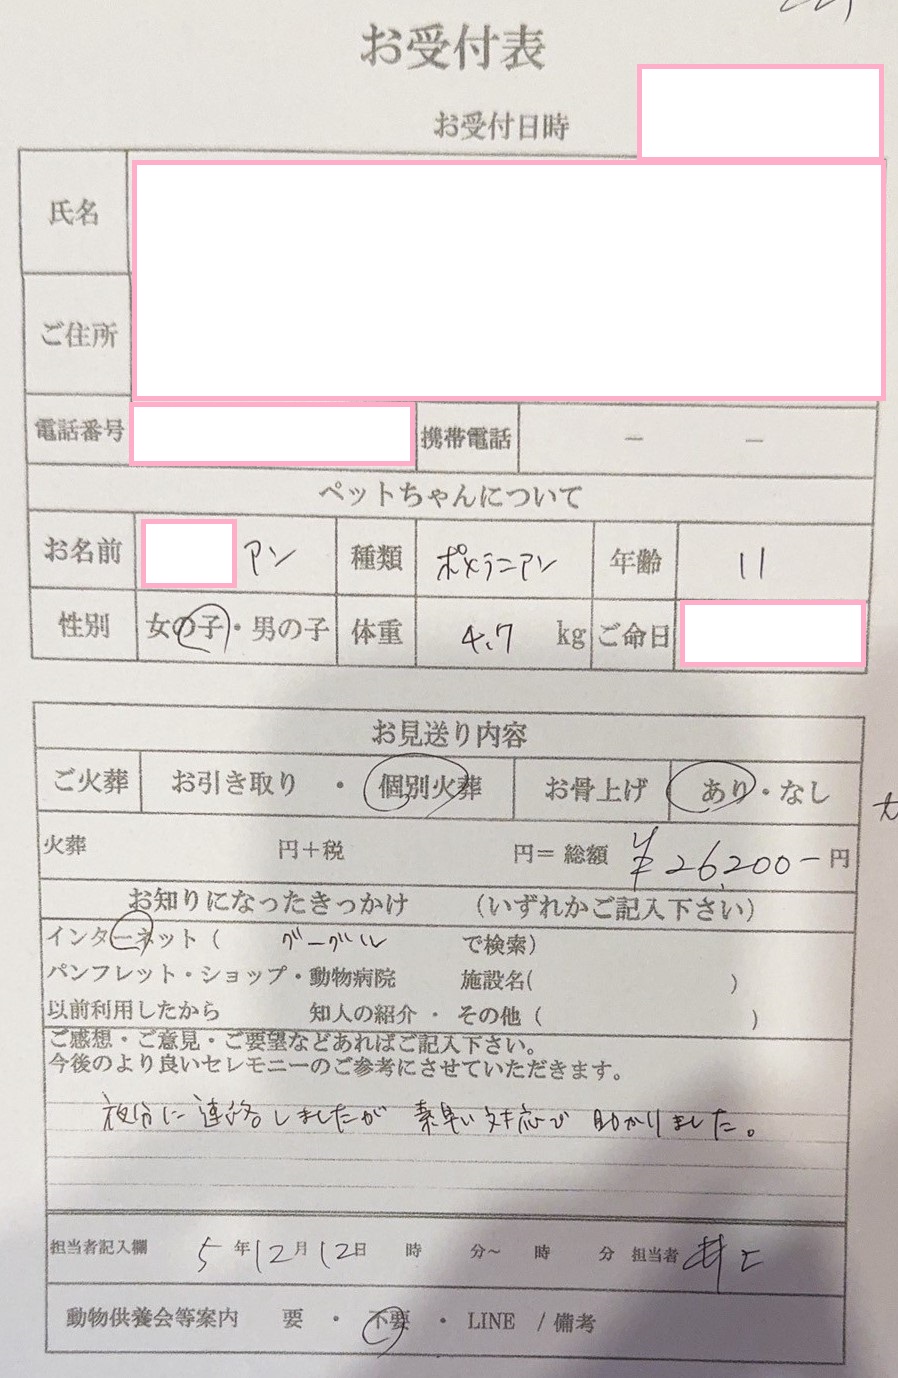 お受付表
お受付日時
氏名
ご住所
電話番号 携帯電話 － －
ペットちゃんについて
お名前 アン 種類 ポメラニアン 年齢 11
性別 女の子・男の子 体重 4.7 kg ご命日
お見送り内容
ご火葬 お引き取り ・ 個別火葬 お骨上げ あり・なし
火葬 円＋税 円＝ 総額 ¥26,200－円
お知りになったきっかけ （いずれかご記入下さい）
インターネット（ グーグル で検索）
パンフレット・ショップ・動物病院 施設名( )
以前利用したから 知人の紹介 ・ その他（ ）
ご感想・ご意見・ご要望などあればご記入下さい。
今後のより良いセレモニーのご参考にさせていただきます。
夜分に連絡しましたが 素早い対応で 助かりました。
担当者記入欄 5年12月12日 時 分～ 時 分 担当者 井上
動物供養会等案内 要 ・ 不要 ・ LINE / 備考